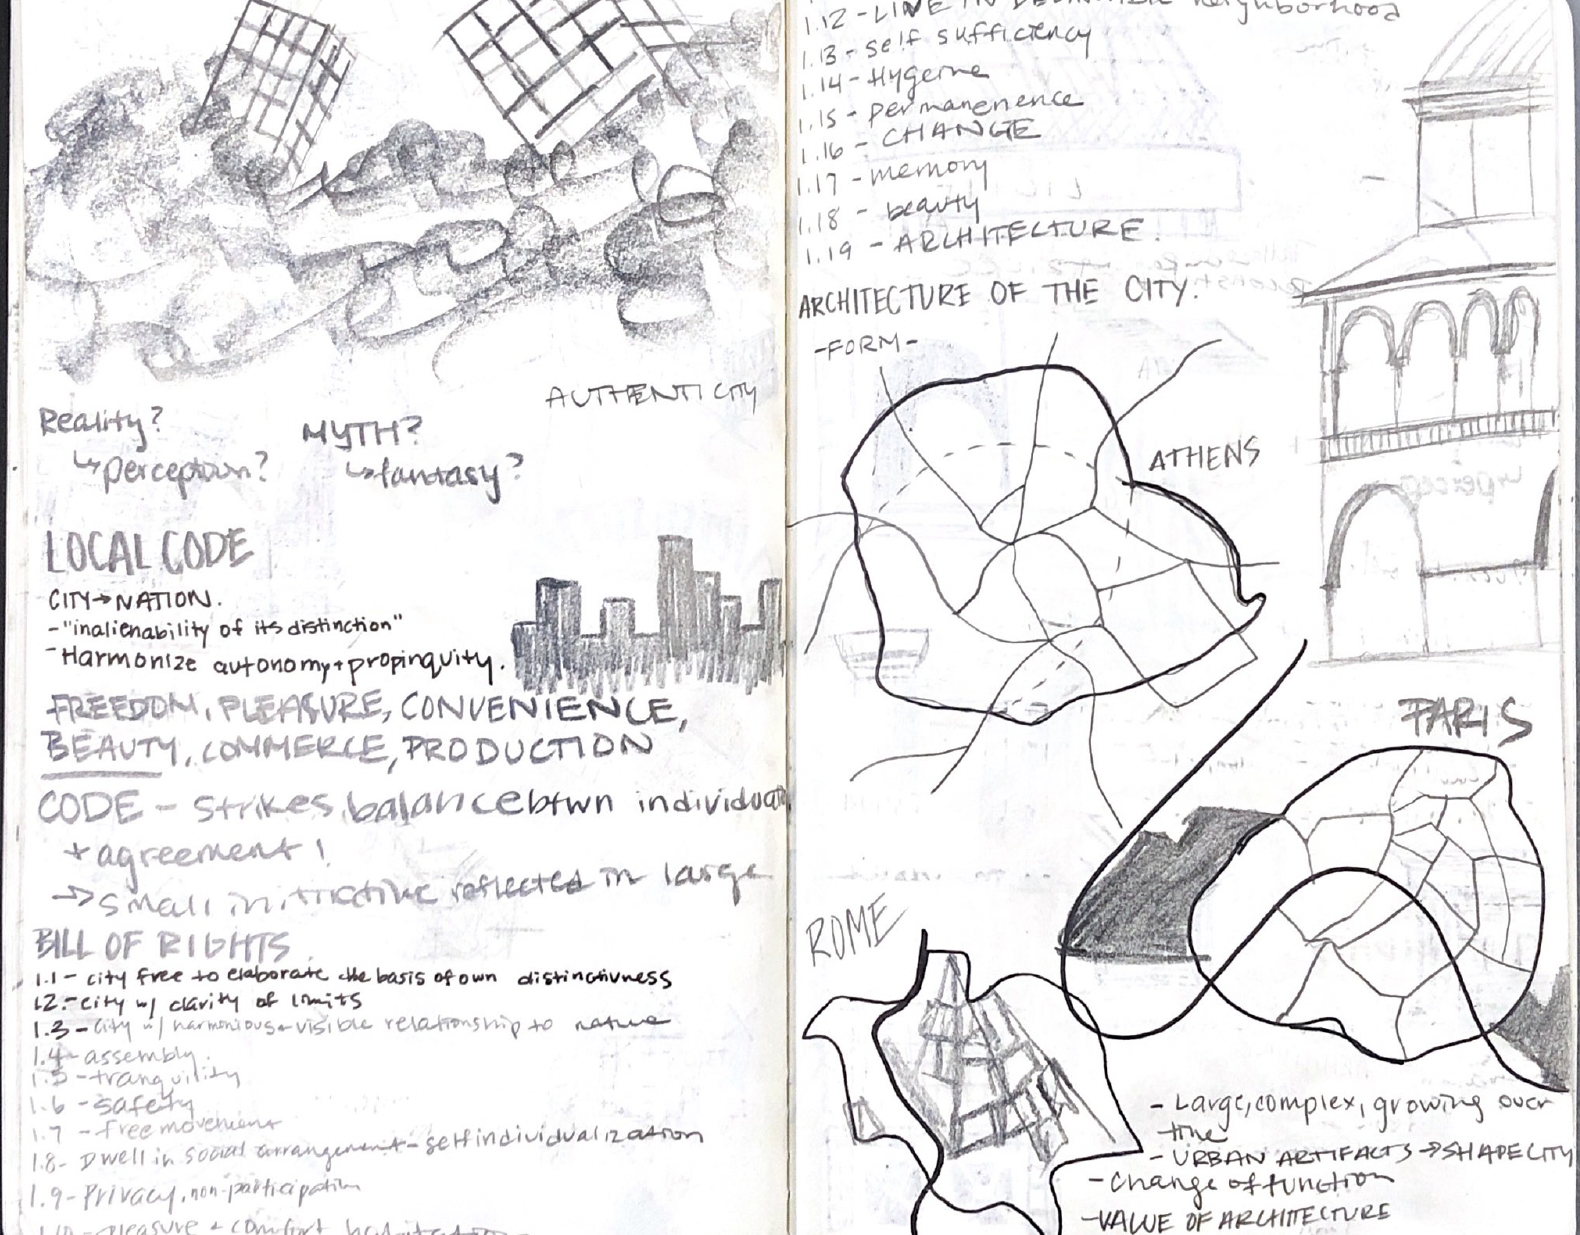 AUTHENTICITY
Reality?
↳perception?
MYTH?
↳fantasy?
LOCAL CODE
CITY→NATION.
-"inalienability of its distinction"
-Harmonize autonomy+propinquity.
FREEDOM, PLEASURE, CONVENIENCE,
BEAUTY, COMMERCE, PRODUCTION
CODE - strikes balance btwn individual
+ agreement!
→ small initiative reflected in large
BILL OF RIGHTS
1.1 - city free to elaborate the basis of own distinctivness
1.2 - city w/ clarity of limits
1.3 - city w/ harmonious + visible relationship to nature
1.4 - assembly.
1.5 - tranquility
1.6 - safety
1.7 - free movement
1.8 - Dwell in social arrangement - self individualization
1.9 - Privacy, non-participation
1.10 - pleasure + comfort
1.12 - LINE IN neighborhood
1.13 - self sufficiency
1.14 - Hygeine
1.15 - permanenence
1.16 - CHANGE
1.17 - memory
1.18 - beauty
1.19 - ARCHITECTURE.
ARCHITECTURE OF THE CITY.
-FORM-
ATHENS
PARIS
ROME
- Large, complex, growing over
time
- URBAN ARTIFACTS → SHAPE CITY
- Change of function
- VALUE OF ARCHITECTURE